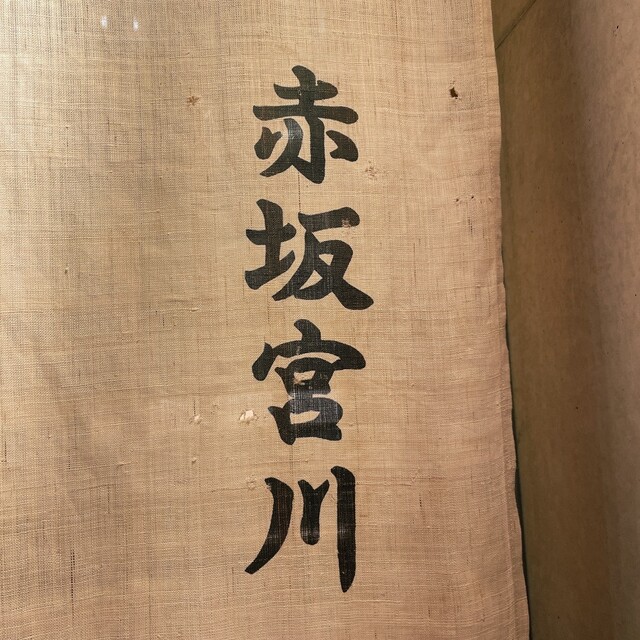 赤坂宮川